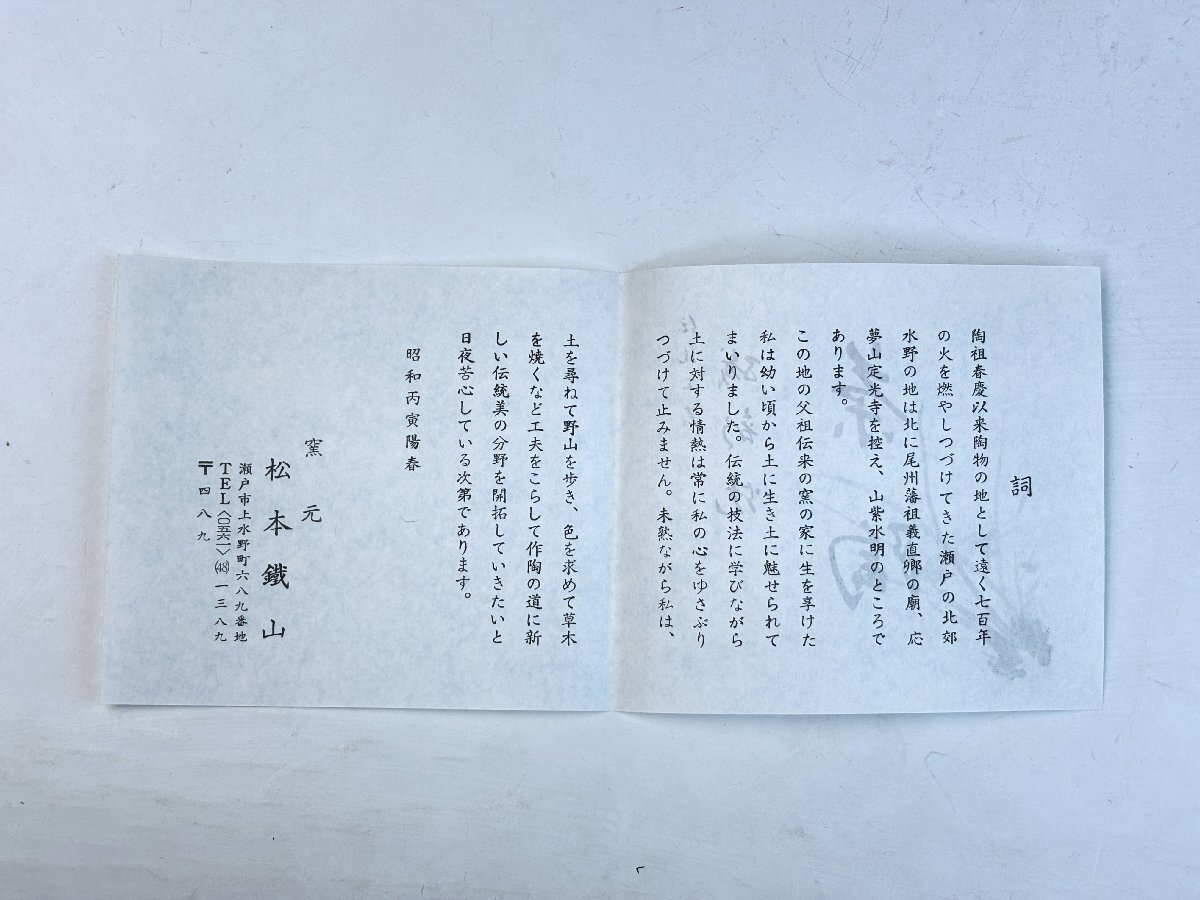 詞
陶祖春慶以来陶物の地として遠く七百年
の火を燃やしつづけてきた瀬戸の北郊
水野の地は北に尾州藩祖義直卿の廟、応
夢山定光寺を控え、山紫水明のところで
あります。
この地の父祖伝来の窯の家に生を享けた
私は幼い頃から土に生き土に魅せられて
まいりました。伝統の技法に学びながら
土に対する情熱は常に私の心をゆさぶり
つづけて止みません。未熟ながら私は、
土を尋ねて野山を歩き、色を求めて草木
を焼くなど工夫をこらして作陶の道に新
しい伝統美の分野を開拓していきたいと
日夜苦心している次第であります。
昭和丙寅陽春
窯元
松本鐵山
瀬戸市上水野町六八九番地
TEL〈〇五六一〉㊽一三八九
〒四八九